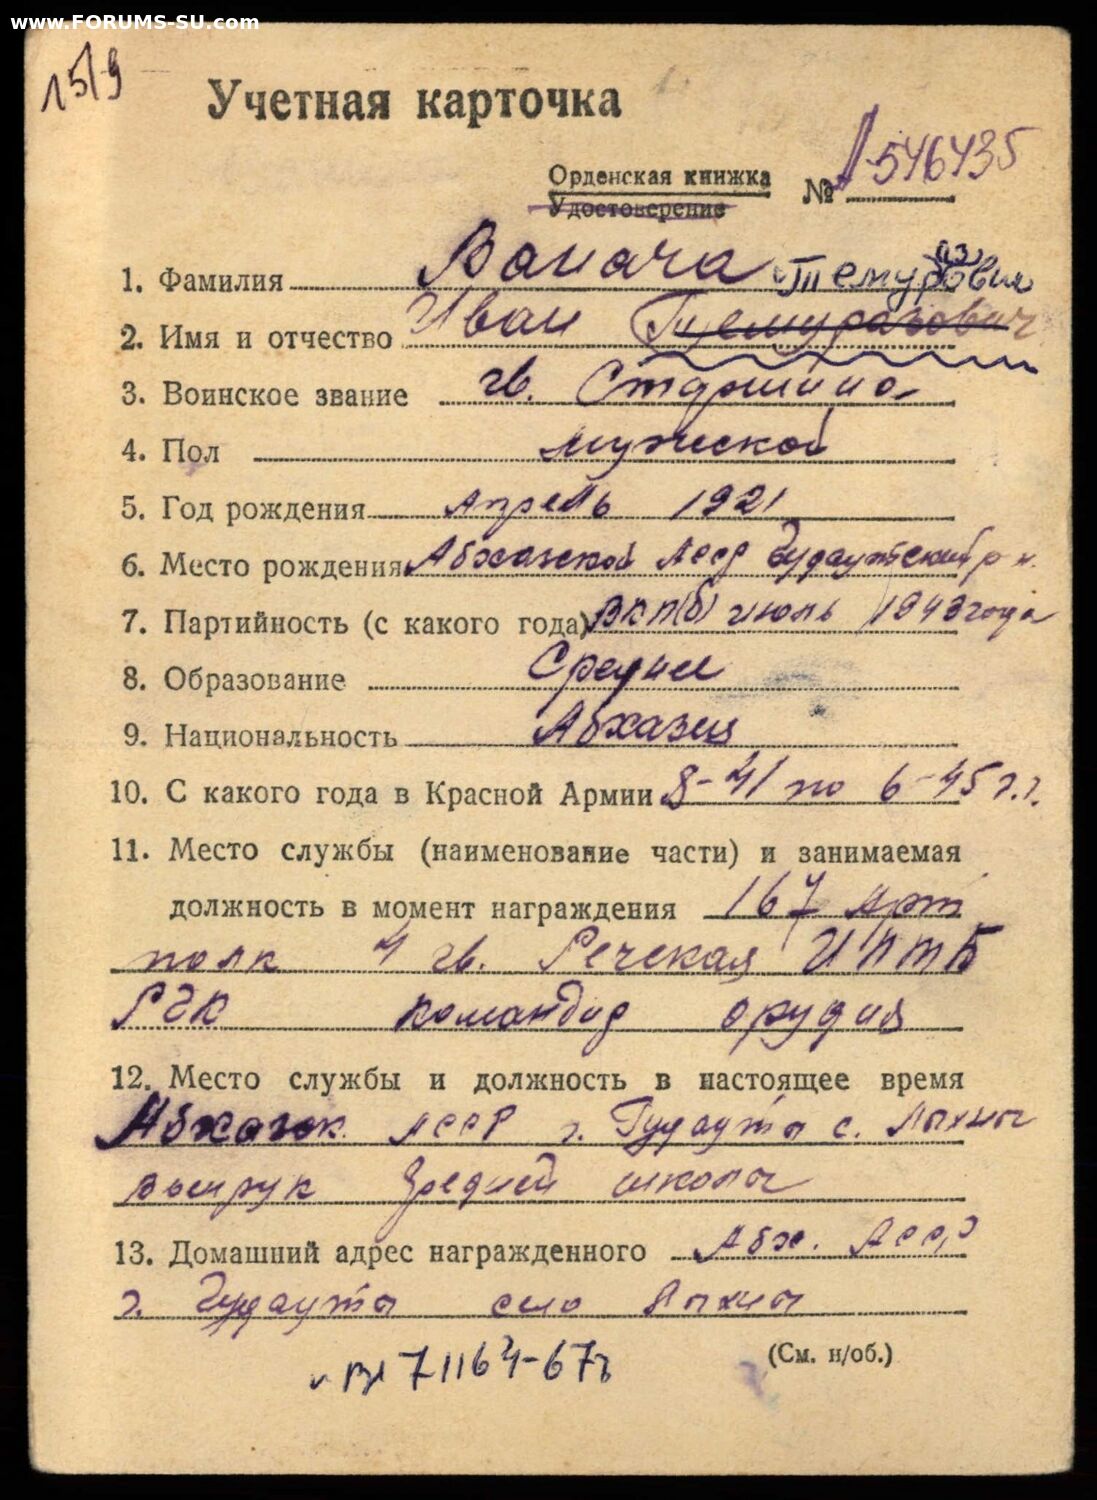 www.FORUMS-SU.com
15/9
Учетная карточка
Орденская книжка
Удостоверение
№ А-546435
1. Фамилия Ванача
Темуразович
2. Имя и отчество Иван Темуразович
3. Воинское звание гв. Старшина
4. Пол мужской
5. Год рождения Апрель 1921
6. Место рождения Абхазской АССР Гудаутский р-н.
7. Партийность (с какого года) ВКП(б) июль 1943 года
8. Образование Среднее
9. Национальность Абхазец
10. С какого года в Красной Армии 8-41 по 6-45 г.г.
11. Место службы (наименование части) и занимаемая
должность в момент награждения 167 Арт
полк 4 гв. Речская ИПТБ
РГК командир орудия
12. Место службы и должность в настоящее время
Абхазск. АССР г. Гудауты с. Лыхны
Военрук Средней школы
13. Домашний адрес награжденного Абх. АССР
г. Гудауты село Лыхны
(См. н/об.)
71164-67г